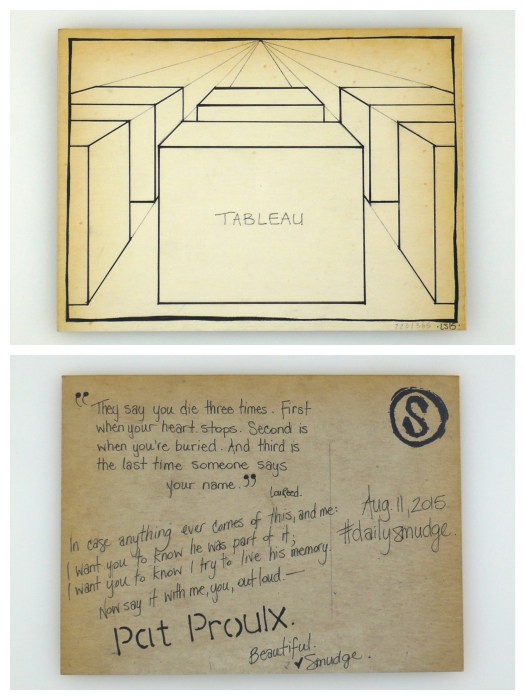 TABLEAU
“They say you die three times. First
when your heart stops. Second is
when you're buried. And third is
the last time someone says
your name.”
S
In case anything ever comes of this, and me:
I want you to know he was part of it;
I want you to know I try to live his memory.
Now say it with me, you, out loud.—
Pat Proulx.
Aug. 11, 2015.
#dailysmudge.
Beautiful.
Smudge.